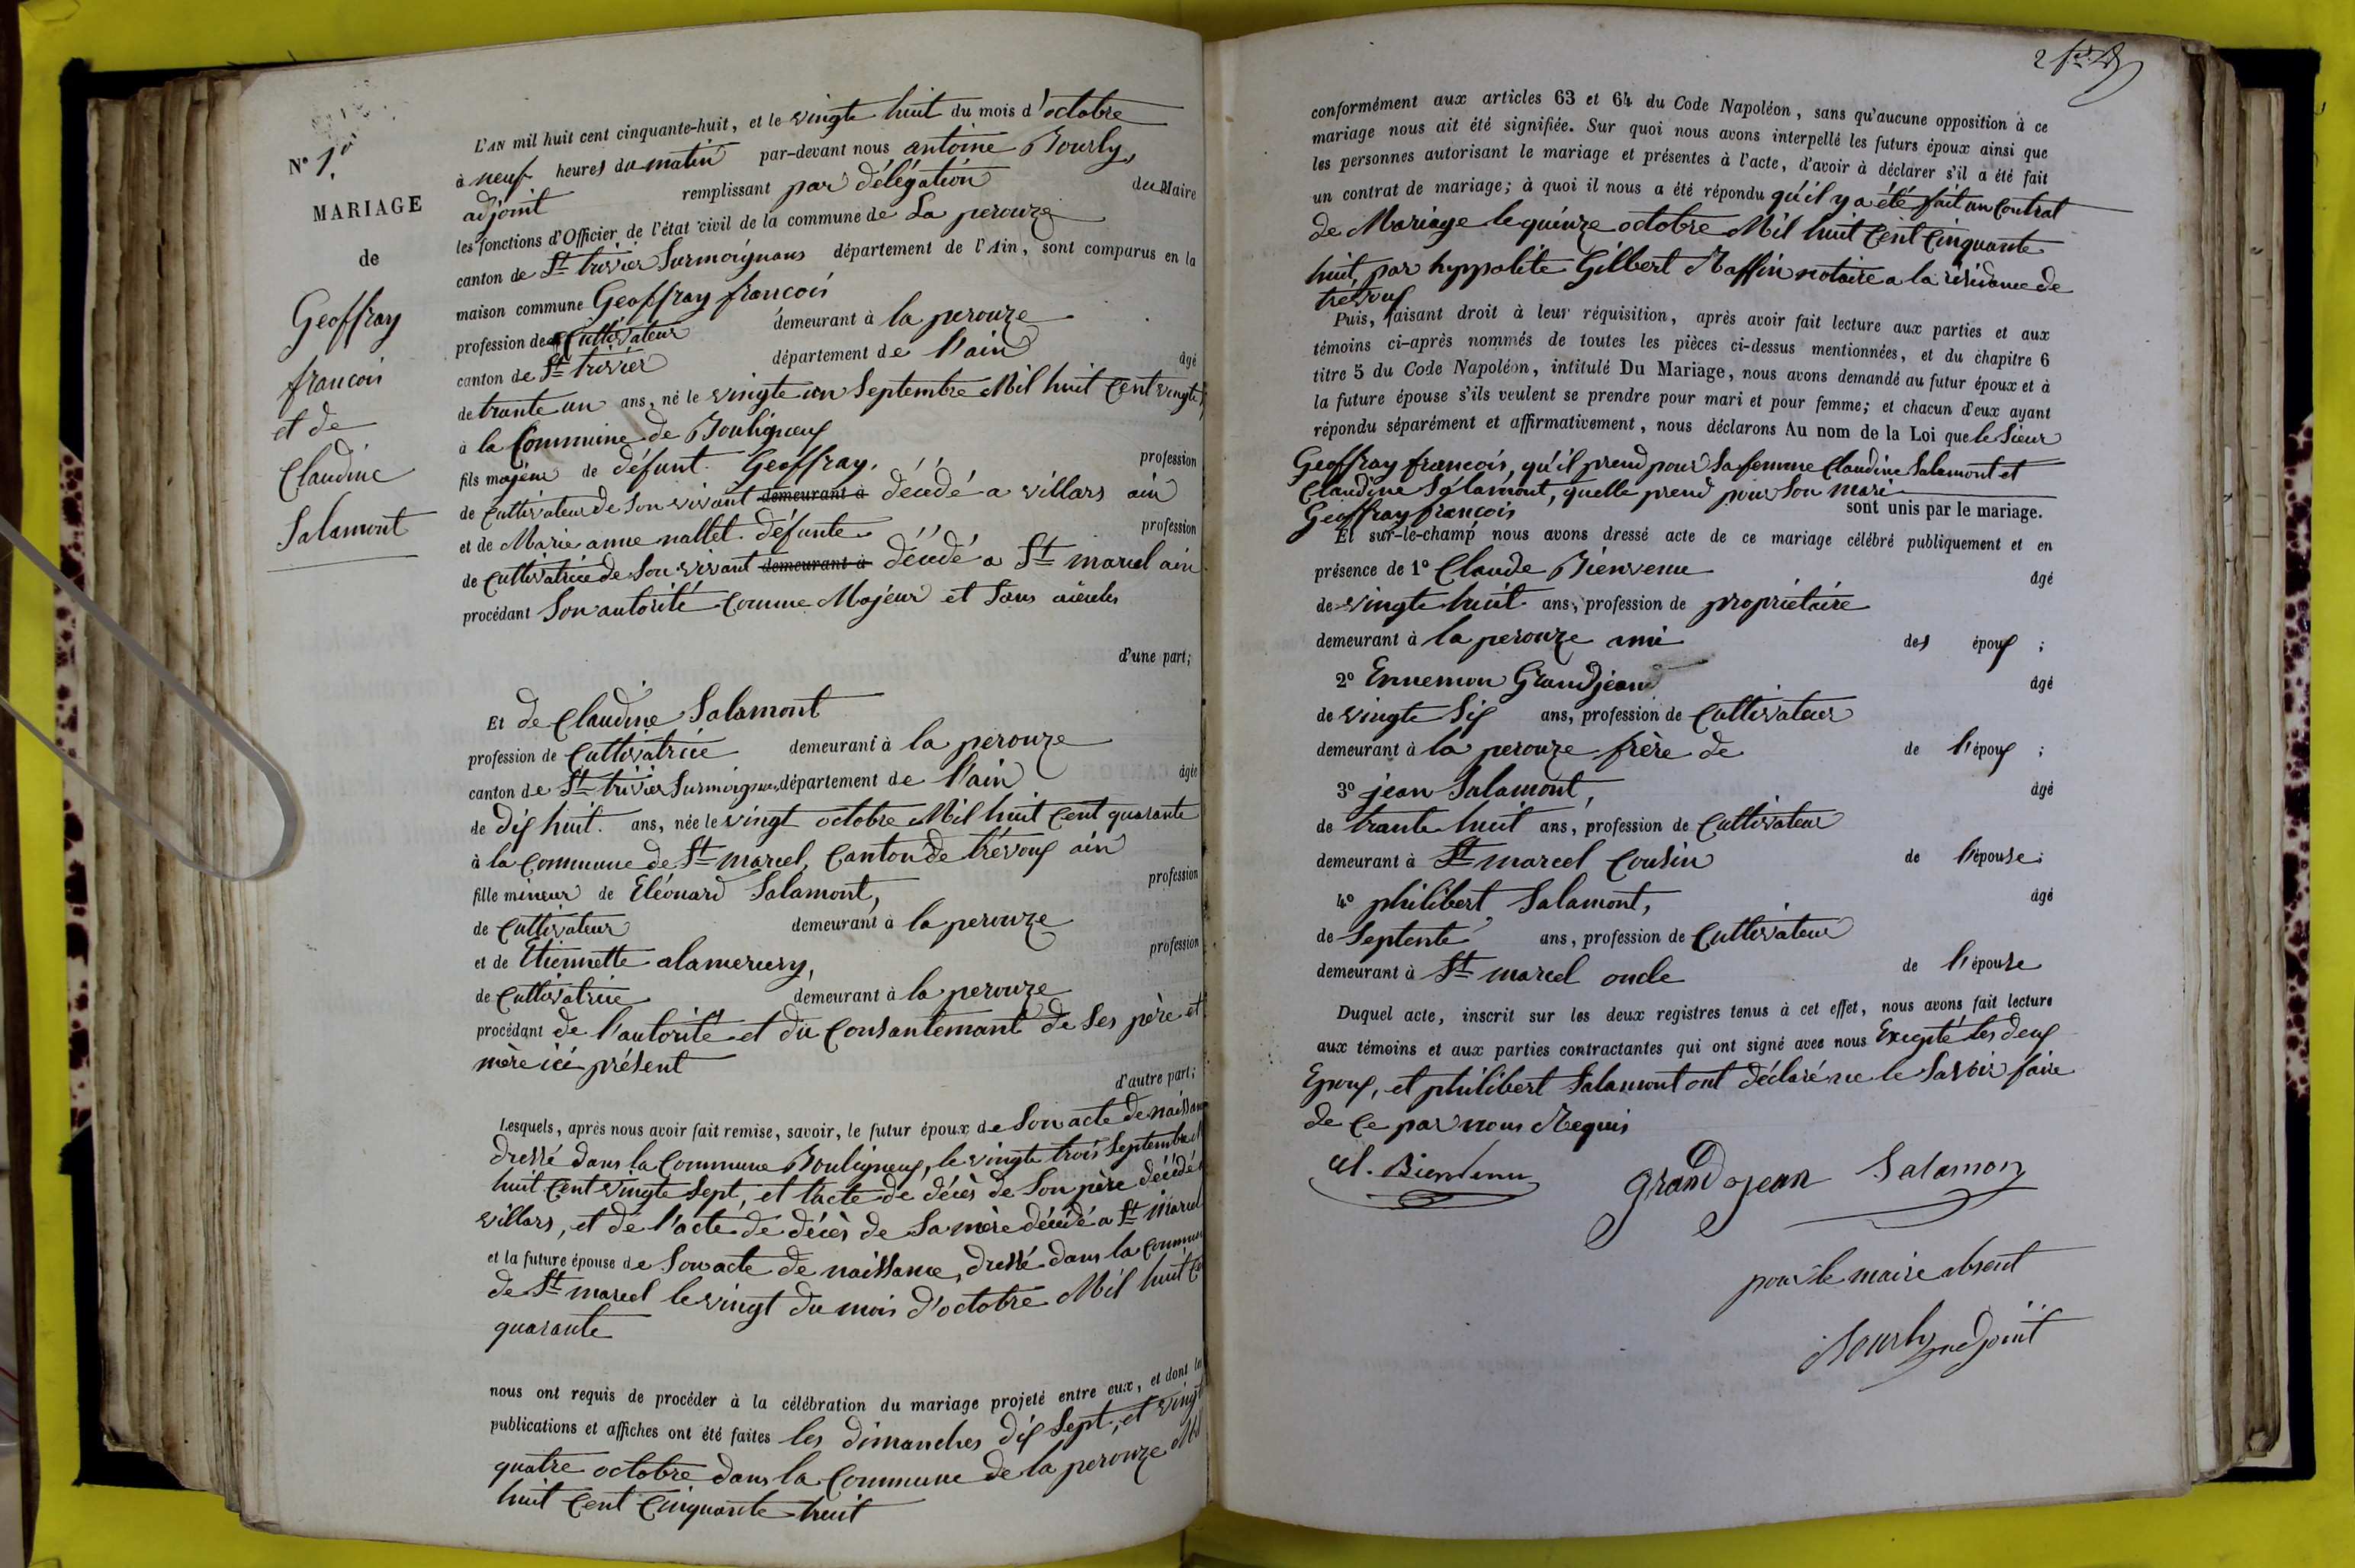 N° 10.
MARIAGE
de
Geoffray
francois
et de
Claudine
Salamont
L'AN mil huit cent cinquante-huit, et le vingte huit du mois d'octobre
à neuf heures du matin par-devant nous antoine Bourly,
adjoint remplissant par délégation du Maire
les fonctions d'Officier de l'état civil de la commune de La perouze
canton de St trivier Surmoignans département de l'Ain, sont comparus en la
maison commune Geoffray francois
profession de Cultivateur demeurant à la perouze
canton de St trivier département de l'ain âgé
de trante un ans, né le vingte un Septembre Mil huit Cent vingte
à la Commune de Bouligneux
fils majeur de défunt Geoffray, profession
de Cultivateur de Son vivant demeurant à décédé a villars ain
et de Marie anne nallet défunte profession
de Cultivatrice de Son vivant demeurant à décédé a St marcel ain
procédant Son autorité Comme Majeur et Sans aieuls
d'une part;
Et de Claudine Salamont
profession de Cultivatrice demeurant à la perouze
canton de St trivier Surmoignans, département de l'ain âgée
de dix huit ans, née le vingt octobre Mil huit Cent quarante
à la Commune de St marcel, Canton de trévoux ain
fille mineur de Eléonard Salamont, profession
de Cultivateur demeurant à la perouze
et de Etiennette alamercery, profession
de Cultivatrice demeurant à la perouze
procédant de l'autorité et du Consantemant de Ses père et
mère ici présent
d'autre part;
Lesquels, après nous avoir fait remise, savoir, le futur époux de Son acte de naissan
dressé dans la Commune Bouligneux, le vingte trois Septembre
huit Cent vingte Sept, et l'acte de décès de Son père décédé
villars, et de l'acte de décès de Sa mère décédé a St marcel
et la future épouse de Son acte de naissance, dressé dans la Commun
de St marcel le vingt du mois d'octobre Mil huit Ce
quarante
nous ont requis de procéder à la célébration du mariage projeté entre eux, et dont les
publications et affiches ont été faites les dimanches dix Sept, et vingt
quatre octobre dans la Commune de la perouze Mil
huit Cent Cinquante huit
conformément aux articles 63 et 64 du Code Napoléon, sans qu'aucune opposition à ce
mariage nous ait été signifiée. Sur quoi nous avons interpellé les futurs époux ainsi que
les personnes autorisant le mariage et présentes à l'acte, d'avoir à déclarer s'il a été fait
un contrat de mariage; à quoi il nous a été répondu qu'il y a été fait un Contrat
de Mariage le quinze octobre Mil huit Cent Cinquante
huit, par hyppolite Gilbert Raffin notaire a la résidance de
trévoux
Puis, faisant droit à leur réquisition, après avoir fait lecture aux parties et aux
témoins ci-après nommés de toutes les pièces ci-dessus mentionnées, et du chapitre 6
titre 5 du Code Napoléon, intitulé Du Mariage, nous avons demandé au futur époux et à
la future épouse s'ils veulent se prendre pour mari et pour femme; et chacun d'eux ayant
répondu séparément et affirmativement, nous déclarons Au nom de la Loi que le Sieur
Geoffray francois, qu'il prend pour Sa femme Claudine Salamont et
Claudine Salamont, quelle prend pour Son mari
Geoffray francois sont unis par le mariage.
Et sur-le-champ nous avons dressé acte de ce mariage célébré publiquement et en
présence de 1° Claude Bienvenu âgé
de vingte huit ans, profession de propriétaire
demeurant à la perouze ami des époux;
2° Ennemon Grandjean âgé
de vingte Six ans, profession de Cultivateur
demeurant à la perouze frère de de l'époux;
3° jean Salamont, âgé
de trante huit ans, profession de Cultivateur
demeurant à St marcel Cousin de l'épouse;
4° philibert Salamont, âgé
de Septente ans, profession de Cultivateur
demeurant à St marcel oncle de l'épouse
Duquel acte, inscrit sur les deux registres tenus à cet effet, nous avons fait lecture
aux témoins et aux parties contractantes qui ont signé avec nous Excepté les deux
Epoux, et philibert Salamont ont déclaré ne le Savoir faire
de Ce par nous Requis
Cl. Bienvenu
grandjean Salamon
pour le maire absent
Bourly adjoint